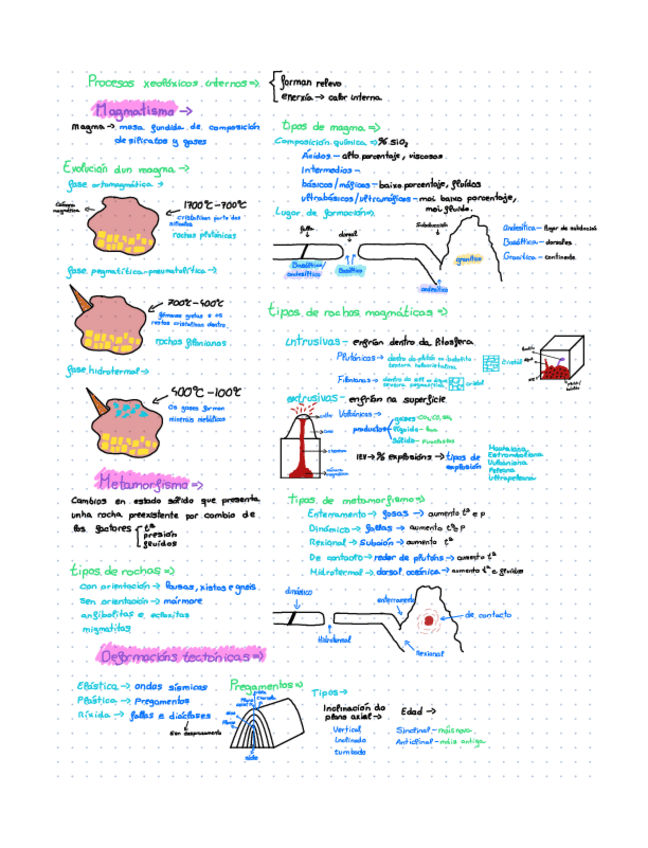 Procesos xeolóxicos internos=>
forman relevo
enerxía → calor interna
Magmatismo →
magma → masa fundida de composición
de silicatos y gases
Evolución dun magma →
fase ortomagmática →
Cámara
magmática
1700°C-700°C
cristalizan parte dos
silicatos
rochas plutónicas
fase pegmatítica-pneumatolítica →
700°C-400°C
rochas filonianas
fase hidrotermal →
400°C-100°C
Os gases forman
minerais metálicos
tipos de magma =>
Composición química → % SiO2
Ácidos - alto porcentaje, viscosos
Intermedios -
básicos/máficos - baixo porcentaje, fluídos
ultrabásicos/ultramáficos - moi baixo porcentaje,
moi fluído.
Lugar de formación =>
falla
dorsal
Subducción
Basáltico/
andesítico
Basáltico
granítico
andesítico
Andesítico - lugar de subdución
Basáltico - dorsales
Granítico - continente
tipos de rochas magmáticas =>
intrusivas - enfrían dentro da litosfera
Plutónicas →
cristal
Filonianas →
cristal
extrusivas - enfrían na superficie
Volcánicas →
productos
gaseos
líquido - lava
Sólido - piroclastos
IEV → % explosións → tipos de
explosión
Hawaiana
Estromboliana
Vulcaniana
Peleana
Ultrapeleana
Metamorfismo =>
Cambios en estado sólido que presenta
unha rocha preexistente por cambio de
los factores
tª
presión
fluidos
tipos de metamorfismo =>
Enterramento → fosas → aumento tª e p
Dinámico → fallas → aumento tª e p
Rexional → Subción → aumento tª
De contacto → redor de plutóns → aumento tª
Hidrotermal → dorsal oceánica → aumento tª e fluídos
tipos de rochas =>
con orientación → lousas, xistos e gneis
sen orientación → mármore
anfibolitas e ecloxitas
migmatitas
dinámico
enterramento
de contacto
Hidrotermal
Rexional
Deformacións tectónicas =>
Elástica → ondas sísmicas
Plástica → Pregamentos
Ríxida → fallas e diáclases
Sen desprazamento
Pregamentos =>
Tipos →
Inclinación do
plano axial →
Vertical
Inclinado
tumbado
Edad →
Sinclinal - máis novo
Anticlinal - máis antiga